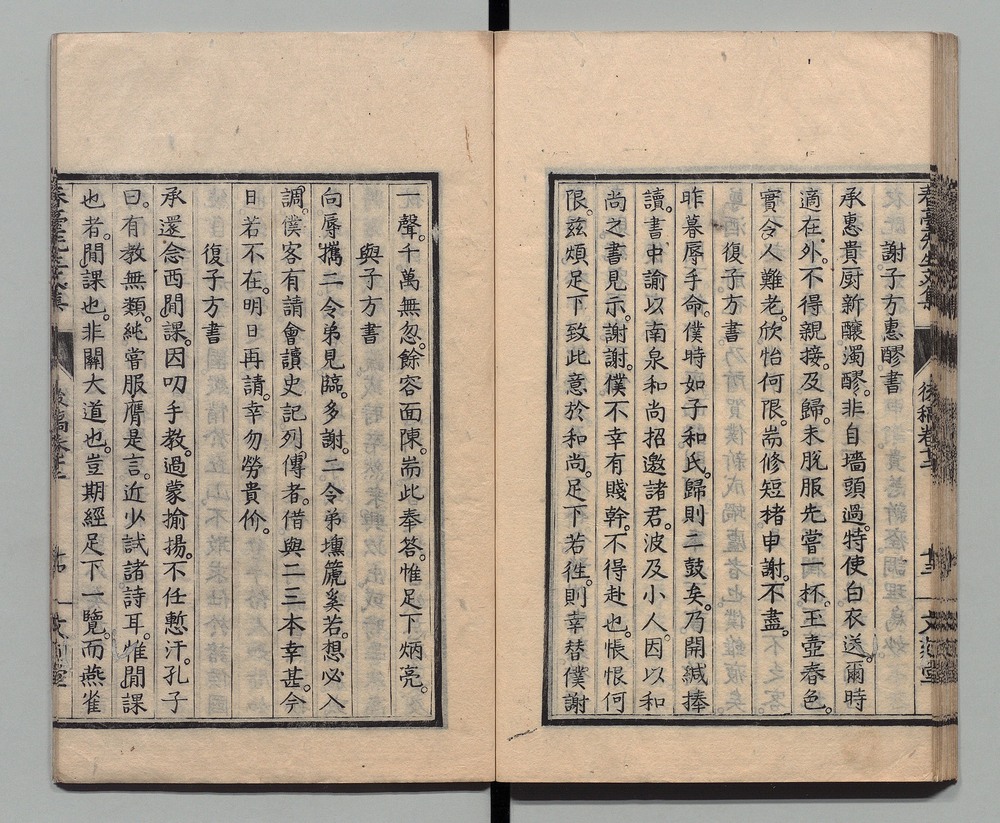 春臺先生文集 後稿卷十三
謝子方惠醪書
承惠貴厨新釀濁醪。非自墻頭過。特使白衣送。爾時
適在外。不得親接。及歸。未脫服先嘗一杯。玉壺春色。
實令人難老。欣怡何限。耑修短楮申謝。不盡。
復子方書
昨暮辱手命。僕時如子和氏。歸則二鼓矣。乃開緘捧
讀。書中諭以南泉和尚招邀諸君。波及小人。因以和
尚之書見示。謝謝。僕不幸有賤幹。不得赴也。悵恨何
限。茲煩足下致此意於和尚。足下若徃。則幸替僕謝
一聲。千萬無忽。餘容面陳。耑此奉答。惟足下炳亮。
與子方書
向辱攜二令弟見臨。多謝。二令弟壎篪奚若。想必入
調。僕客有請會讀史記列傳者。借與二三本幸甚。今
日若不在。明日再請。幸勿勞貴价。
復子方書
承還念西閒課。因叨手教。過蒙揄揚。不任慙汗。孔子
曰。有教無類。純嘗服膺是言。近少試諸詩耳。惟閒課
也者。閒課也。非關大道也。豈期經足下一覽。而燕雀
春臺先生文集 後稿卷十三